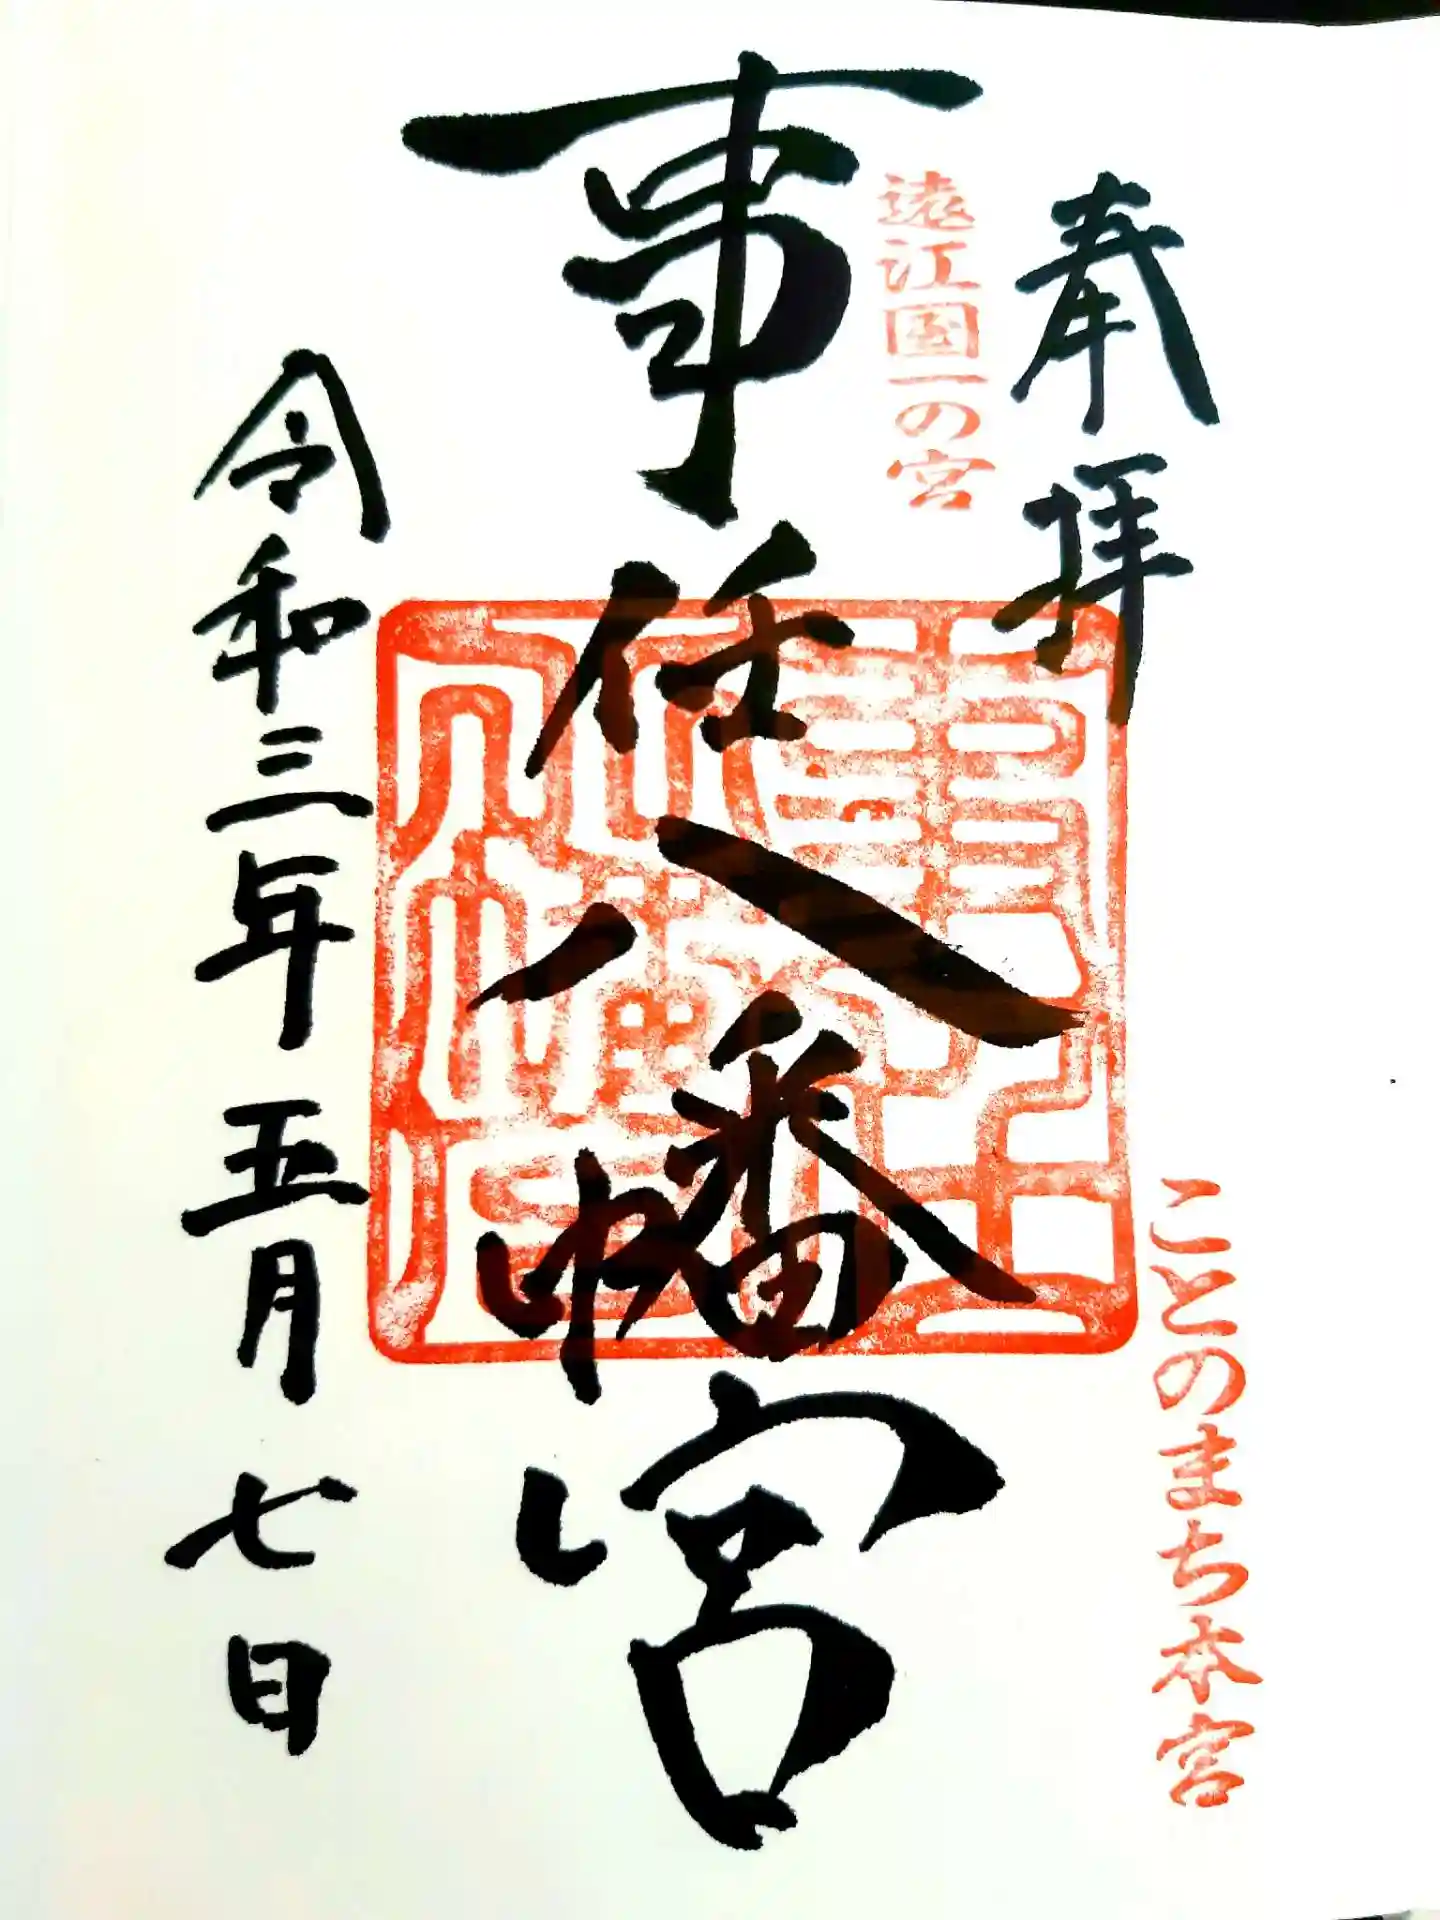 奉拝
ことのまち本宮
遠江国一の宮
事任八幡宮
令和三年五月七日